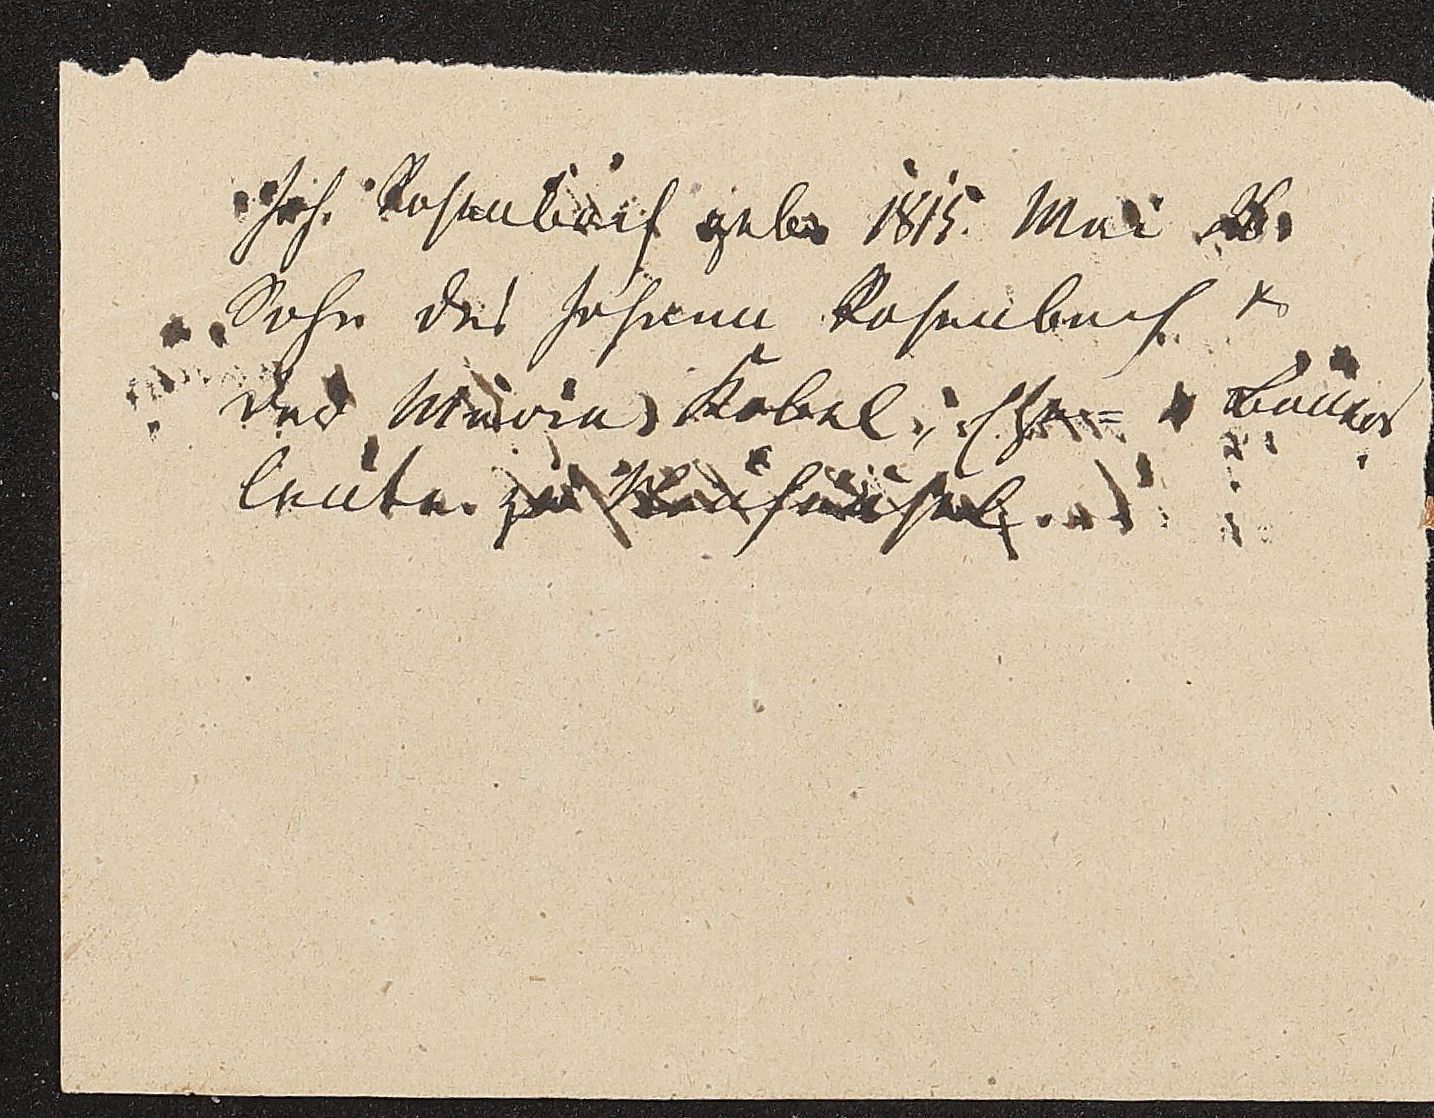 Joh. Rosenbach geb. 1815. Mai 28.
Sohn des Johann Rosenbach &
der Maria Kobel, Ehe= & Bauers
leute zu